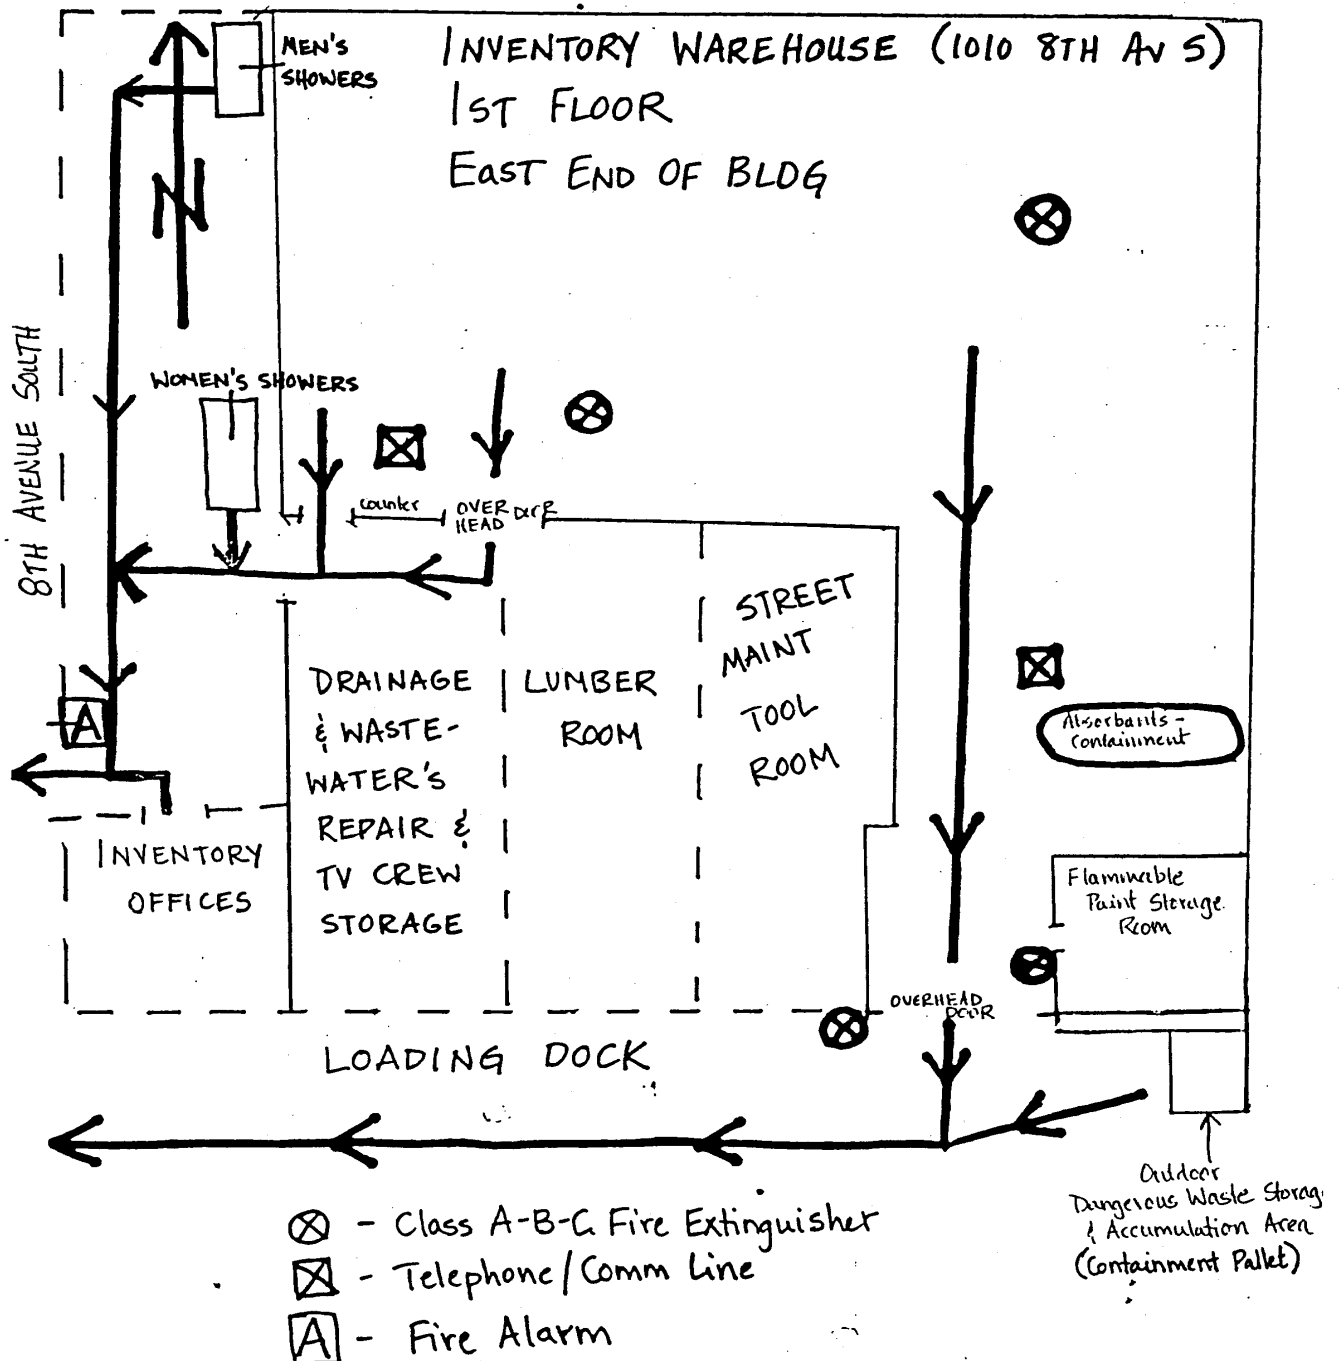 MEN'S
SHOWERS
INVENTORY WAREHOUSE (1010 8TH AV S)
1ST FLOOR
EAST END OF BLDG
N
8TH AVENUE SOUTH
WOMEN'S SHOWERS
counter
OVER
HEAD
DOOR
DRAINAGE
& WASTE-
WATER'S
REPAIR &
TV CREW
STORAGE
LUMBER
ROOM
STREET
MAINT
TOOL
ROOM
Absorbants-
Containment
A
INVENTORY
OFFICES
Flammable
Paint Storage
Room
OVERHEAD
DOOR
LOADING DOCK
Outdoor
Dangerous Waste Storag
& Accumulation Area
(Containment Pallet)
- Class A-B-C Fire Extinguisher
- Telephone/Comm Line
A - Fire Alarm